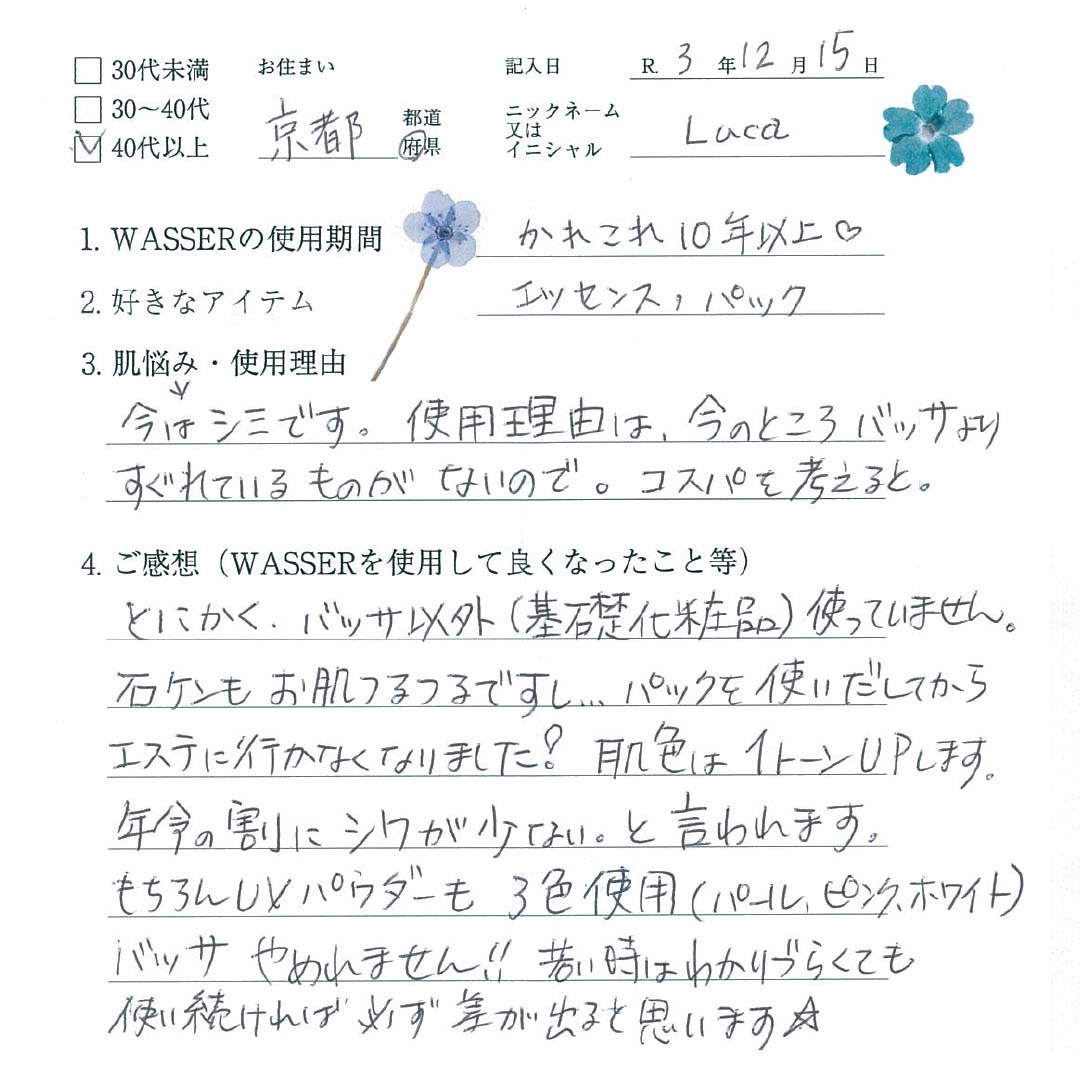 30代未満 お住まい 記入日 R. 3 年 12 月 15 日
30〜40代 京都 都道府県 ニックネーム又はイニシャル Luca
40代以上
1. WASSERの使用期間 かれこれ10年以上♡
2. 好きなアイテム エッセンス, パック
3. 肌悩み・使用理由
今はシミです。使用理由は、今のところバッサより
すぐれているものがないので。コスパを考えると。
4. ご感想（WASSERを使用して良くなったこと等）
とにかく、バッサ以外(基礎化粧品)使っていません。
石ケンもお肌つるつるですし…パックを使いだしてから
エステに行かなくなりました！肌色は1トーンUPします。
年令の割にシワが少ない。と言われます。
もちろんUVパウダーも3色使用(パール、ピンク、ホワイト)
バッサやめれません!! 若い時はわかりづらくても
使い続ければ必ず差が出ると思います☆